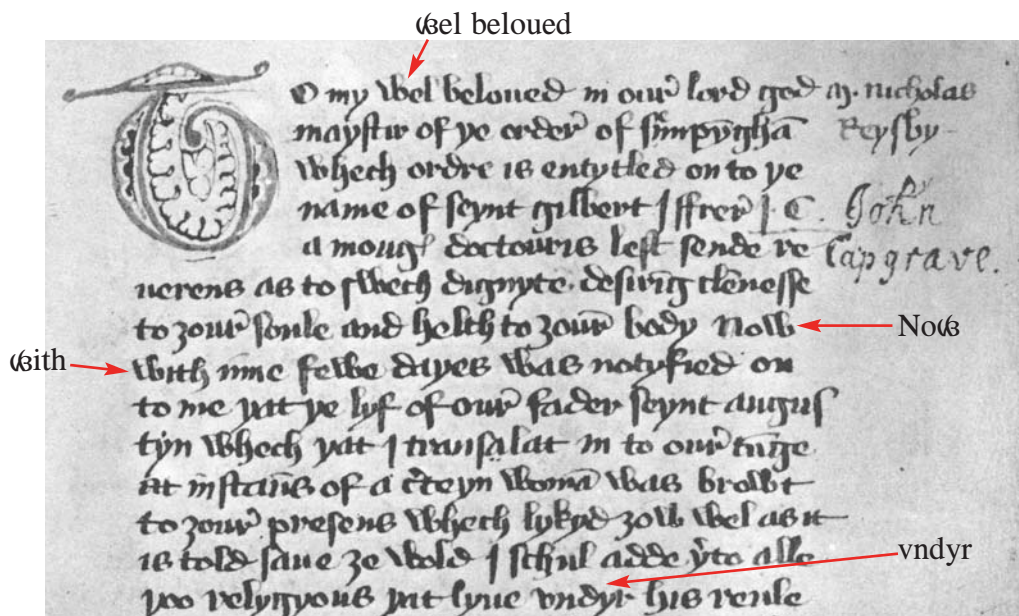 ꟃel beloued
O my wel beloued in our̛ lord god
maystir of ye order̛ of
whech ordre is entytled on to ye
name of seynt gilbert I ffrer̛ I. C.
a mong doctouris lest sende re
uerens as to swech dignyte desiring clennesse
to ȝour̛ soule and helth to ȝour̛ body Now
with inne fewe dayes was notyfied on
to me yat ye lyf of our̛ fader seynt augus
tyn whech yat I translat in to our̛ tunge
at instauns of a woman was browt
to ȝour̛ presens whech lykyd ȝow wel as it
is told saue ȝe wold I schul adde yto alle
yoo relygyous yat lyue vndyr his reule
M. Nicholas
Reysby
John
Capgrave.
Noꟃ
ꟃith
vndyr